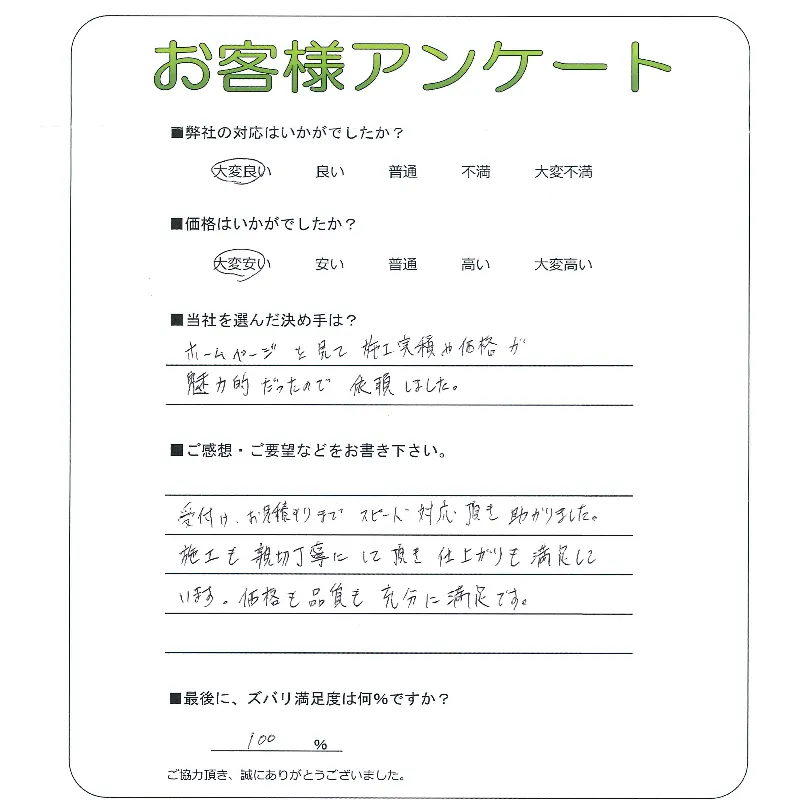 お客様アンケート
■弊社の対応はいかがでしたか？
大変良い 良い 普通 不満 大変不満
■価格はいかがでしたか？
大変安い 安い 普通 高い 大変高い
■当社を選んだ決め手は？
ホームページを見て施工実積や価格が
魅力的だったので依頼しました。
■ご感想・ご要望などをお書き下さい。
受付け、お見積もりまでスピード対応頂き助かりました。
施工も親切丁寧にして頂き仕上がりも満足して
います。価格も品質も充分に満足です。
■最後に、ズバリ満足度は何%ですか？
100 %
ご協力頂き、誠にありがとうございました。